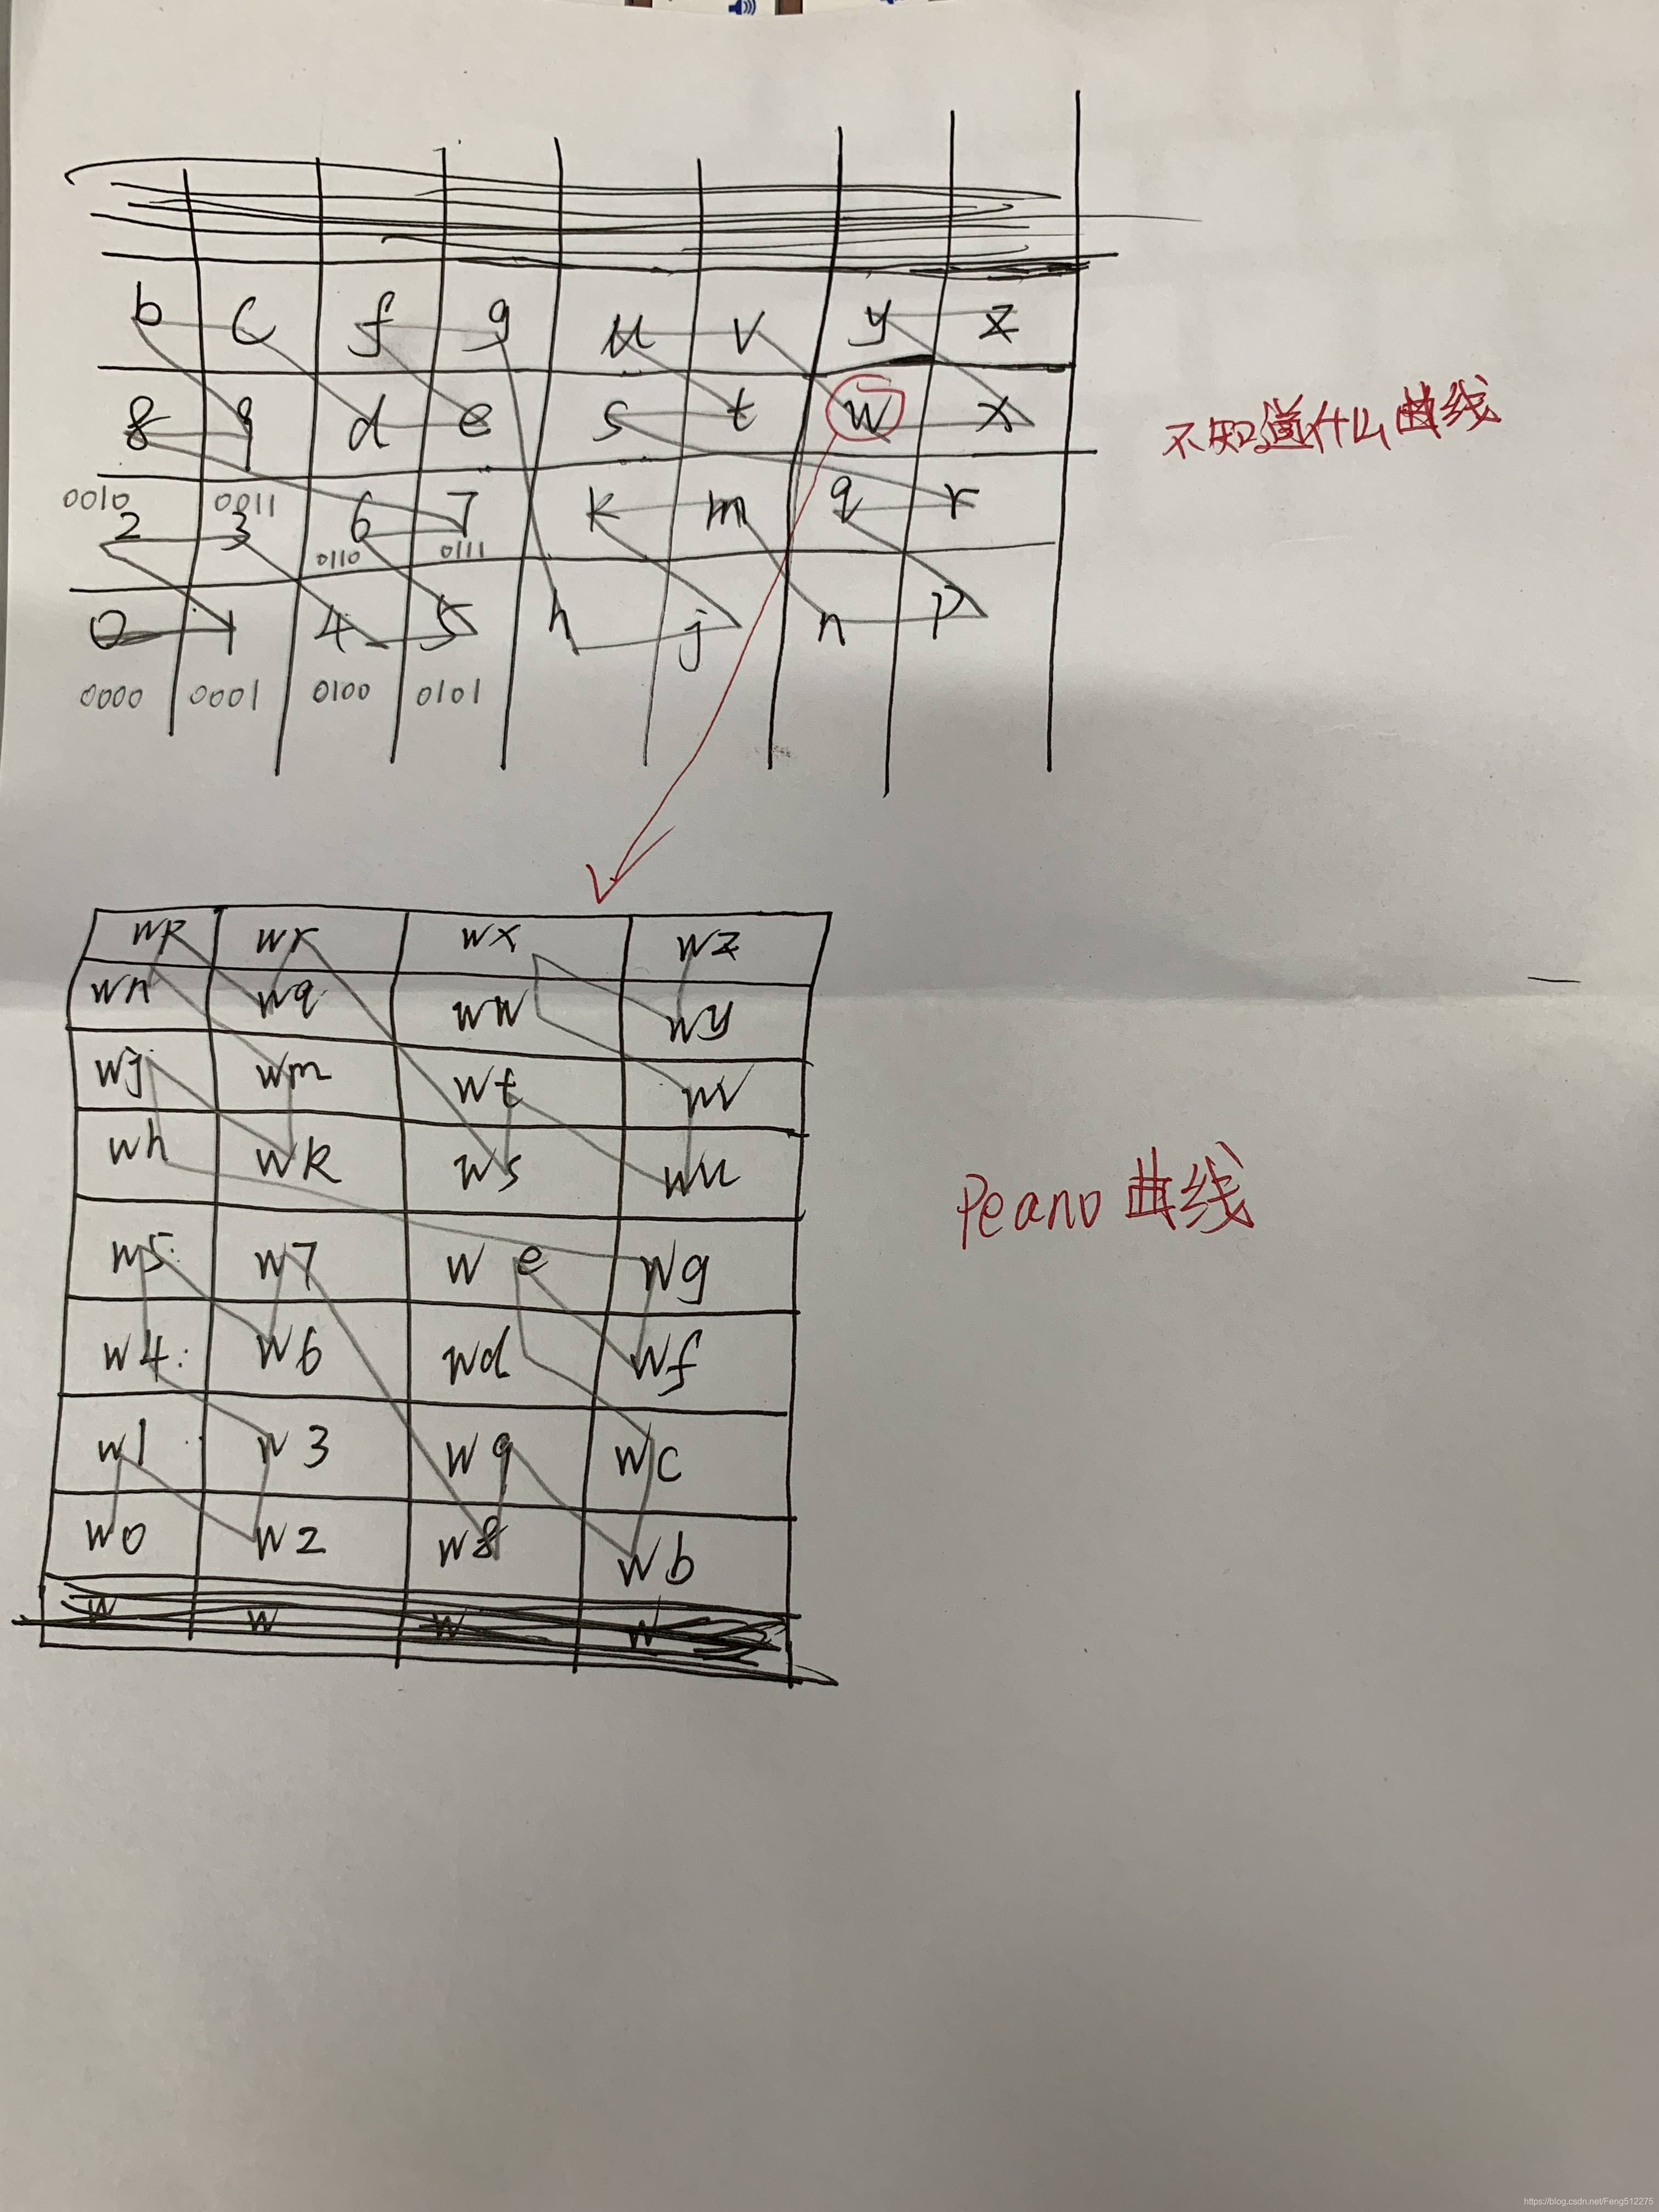 b c f g u v y z
8 9 d e s t w x
0010 0011
2 3 6 7 k m q r
0110 0111
0 1 4 5 h j n p
0000 0001 0100 0101
不知道什么曲线
wp wr wx wz
wn wq ww wy
wj wm wt wv
wh wk ws wu
w5 w7 we wg
w4 w6 wd wf
w1 w3 w9 wc
w0 w2 w8 wb
w w w w
Peano 曲线
https://blog.csdn.net/Feng512275